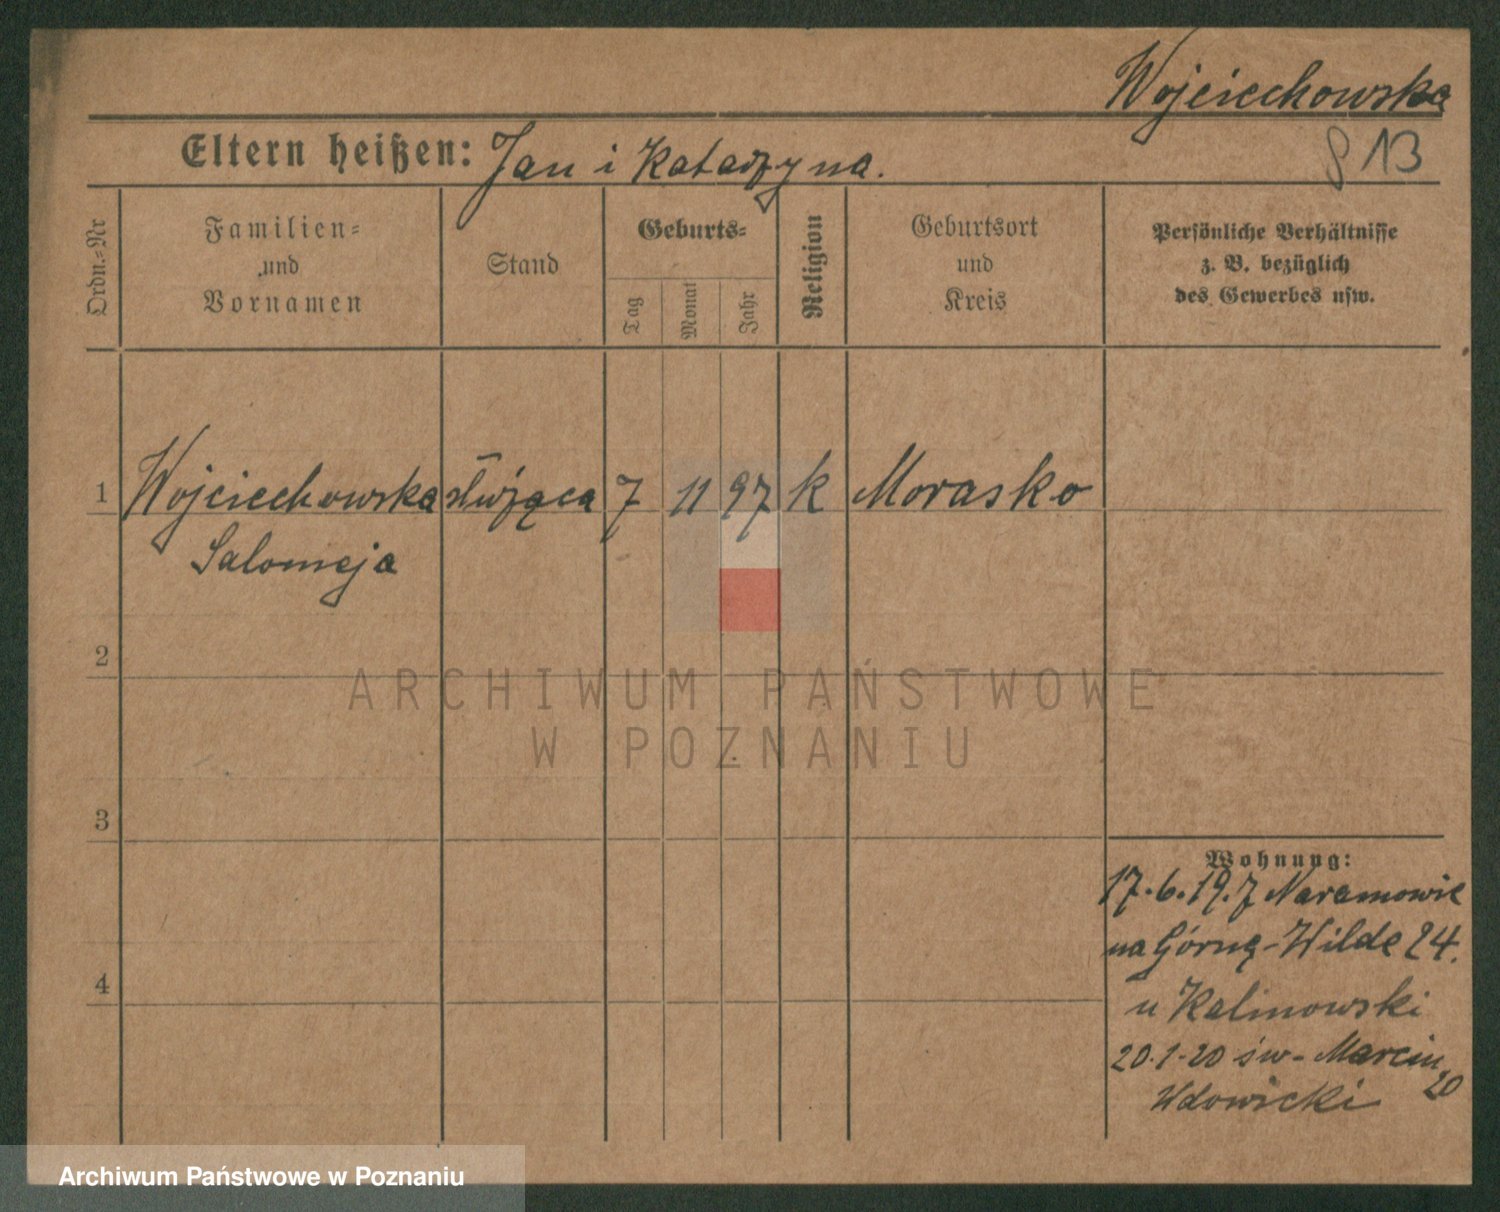 Wojciechowska
Eltern heißen: Jan i Katarzyna.
813
Ordn.=Nr
Familien=
und
Vornamen
Stand
Geburts=
Tag
Monat
Jahr
Religion
Geburtsort
und
Kreis
Persönliche Verhältnisse
z. B. bezüglich
des Gewerbes usw.
1 Wojciechowska służąca 7 11 97 k Morasko
Salomeja
2
3
4
Wohnung:
17.6.19. z Naramowic
na Górną-Wildę 24.
u Kalinowski
20.1-20 św- Marcin 20
Wdowicki
ARCHIWUM PAŃSTWOWE
W POZNANIU
Archiwum Państwowe w Poznaniu